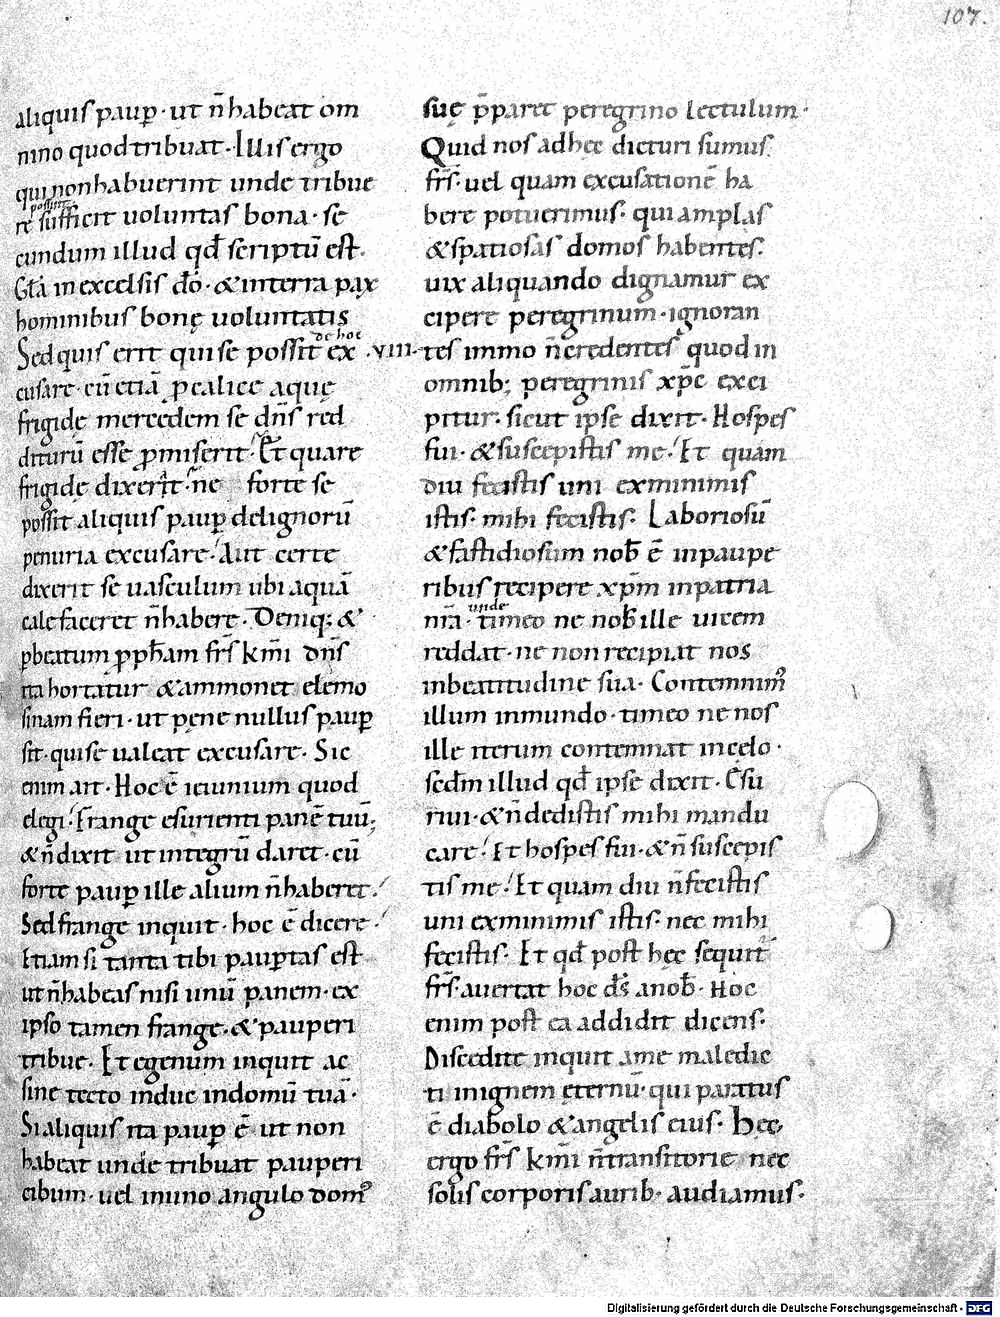 107.
aliquis paup̱. ut n̄ habeat om
nino quod tribuat. Illis ergo
qui non habuerint unde tribue
re possint sufficit uoluntas bona. se
cundum illud qđ scriptū est.
Gl̄a in excelsis dō. & in terra pax
hominibus bonę uoluntatis
Sed quis erit qui se possit de hoc ex .VIII.
cusare. cū etiā p̱ calice aquę
frigidę mercedem se dn̄s red
diturū esse p̱miserit. Et quare
frigidę dixerit. ne forte se
possit aliquis paup̱ de lignorū
penuria excusare. Aut certe
dixerit se uasculum ubi aquā
calefaceret n̄ habere. Deniq; &
p̱ beatum p̱ph̄am fr̄s km̄i dn̄s
ita hortatur & ammonet elemo
sinam fieri. ut pęne nullus paup̱
sit. qui se ualeat excusare. Sic
enim ait. Hoc ē ieiunium quod
elegi. Frange esurienti panē tuū;
& n̄ dixit ut integrū daret. cū
forte paup̱ ille alium n̄ haberet.
Sed frange inquit. hoc ē dicere.
Etiam si tanta tibi paup̱tas est
ut n̄ habeas nisi unū panem. ex
ipso tamen frange. & pauperi
tribue. Et egenum inquit ac
sine tecto induc in domū tuā.
Si aliquis ita paup̱ ē ut non
habeat unde tribuat pauperi
cibum. uel in uno angulo domꝰ
suę p̄paret peregrino lectulum.
Quid nos ad hęc dicturi sumus.
fr̄s. uel quam excusationē ha
bere poterimus. qui amplas
& spatiosas domos habentes.
uix aliquando dignamur ex
cipere peregrinum. ignoran
tes immo n̄ credentes quod in
omnib; peregrinis xp̄c exci
pitur. sicut ipse dixit. Hospes
fui. & suscepistis me. Et quam
diu fecistis uni ex minimis
istis. mihi fecistis. Laboriosū
& fastidiosum nob̄ ē in paupe
ribus recipere xp̄m in patria
nr̄a. unde timeo ne nob̄ ille uicem
reddat. ne non recipiat nos
in beatitudine sua. Contemnimꝰ
illum in mundo. timeo ne nos
ille iterum contemnat in cęlo.
sed̄m illud qđ ipse dixit. Esu
riui. & n̄ dedistis mihi mandu
care. Et hospes fui. & n̄ suscepis
tis me. Et quam diu n̄ fecistis
uni ex minimis istis. nec mihi
fecistis. Et qđ post hęc sequit̄
fr̄s. auertat hoc d̄s a nob̄. Hoc
enim post ea addidit dicens.
Discedite inquit a me maledic
ti in ignem ęternū. qui paratus
ē diabolo & angelis eius. Hęc
ergo fr̄s km̄i n̄ transitorie nec
solis corporis aurib. audiamus.
Digitalisierung gefördert durch die Deutsche Forschungsgemeinschaft - DFG